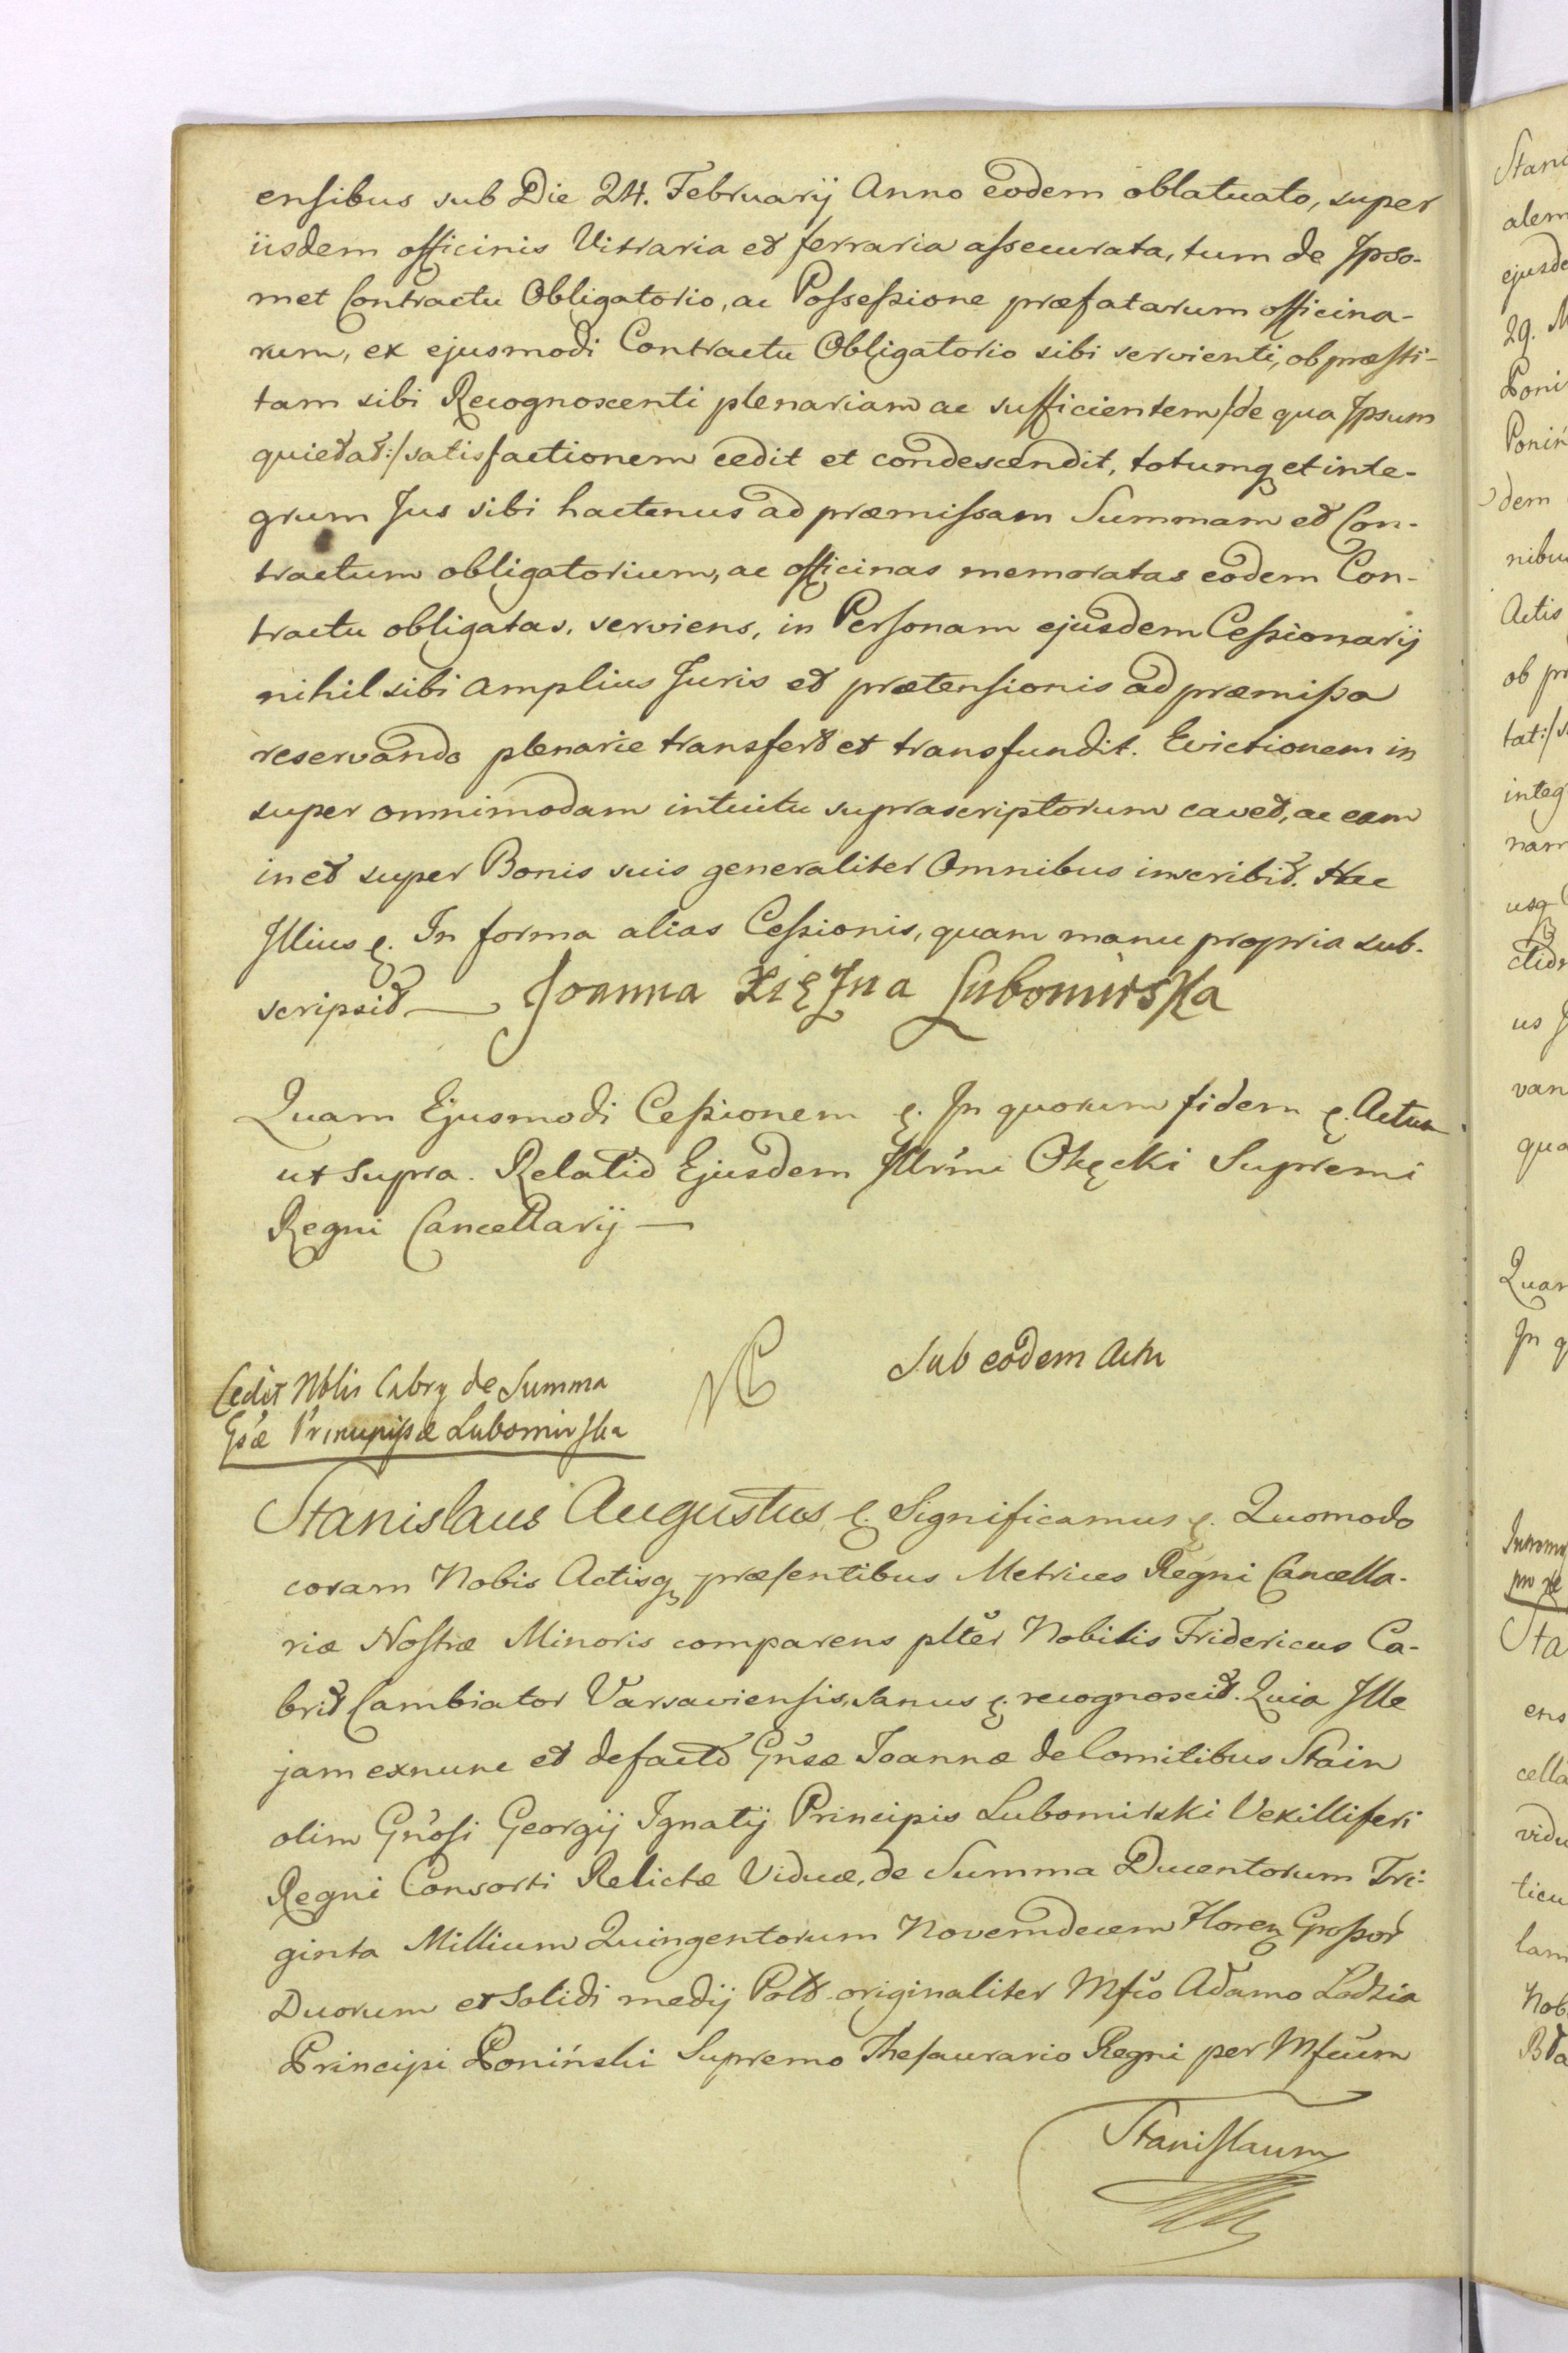 ensibus sub Die 24. Februarij Anno eodem oblatuato, super
iisdem officinis Vitraria et ferraria assecurata, tum de Ipso-
met Contractu Obligatorio, ac Possessione præfatarum officina-
rum, ex ejusmodi Contractu Obligatorio sibi servienti, ob præsti-
tam sibi Recognoscenti plenariam ac sufficientem /: de qua Ipsum
quietat :/ satisfactionem cedit et condescendit, totumq et inte-
grum Jus sibi hactenus ad præmissam Summam et Con-
tractum obligatorium, ac officinas memoratas eodem Con-
tractu obligatas, serviens, in Personam ejusdem Cessionarij
nihil sibi amplius Juris et prætensionis ad præmissa
reservando plenarie transfert et transfundit. Evictionem in
super omnimodam intuitu suprascriptorum cavet, ac eam
in et super Bonis suis generaliter Omnibus inscribit. Hac
Illius &. In forma alias Cessionis, quam manu propria sub-
scripsit — Joanna Xiężna Lubomirska
Quam Ejusmodi Cessionem &. In quorum fidem &. Actum
ut supra. Relatio Ejusdem Illrmi Okęcki Supremi
Regni Cancellarij —
Sub eodem Actu
Cedit Nblis Cabry de Summa
Gsæ Principissæ Lubomirska
Stanislaus Augustus &. Significamus &. Quomodo
coram Nobis Actisq præsentibus Metrices Regni Cancella-
riæ Nostræ Minoris comparens plter Nobilis Fridericus Ca-
brit Cambiator Varsaviensis, sanus &. recognoscit. Quia Ille
jam exnunc et defacto Gnsæ Joannæ de Comitibus Stain
olim Gnosi Georgij Ignatij Principis Lubomirski Vexilliferi
Regni Consorti Relictæ Viduæ, de Summa Ducentorum Tri-
ginta Millium Quingentorum Novemdecem Floren Grossor
Duorum et Solidi medij Pold originaliter Mfco Adamo Lodzia
Principi Poniński Supremo Thesaurario Regni per Mfcum
Stanislaum